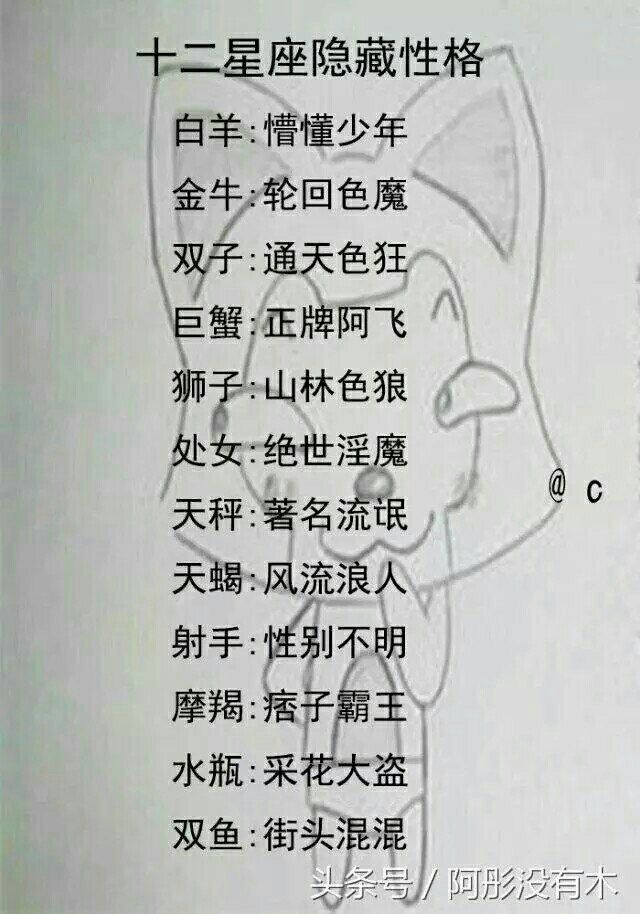 十二星座隐藏性格
白羊:懵懂少年
金牛:轮回色魔
双子:通天色狂
巨蟹:正牌阿飞
狮子:山林色狼
处女:绝世淫魔
@ c
天秤:著名流氓
天蝎:风流浪人
射手:性别不明
摩羯:痞子霸王
水瓶:采花大盗
双鱼:街头混混
头条号/阿彤没有木